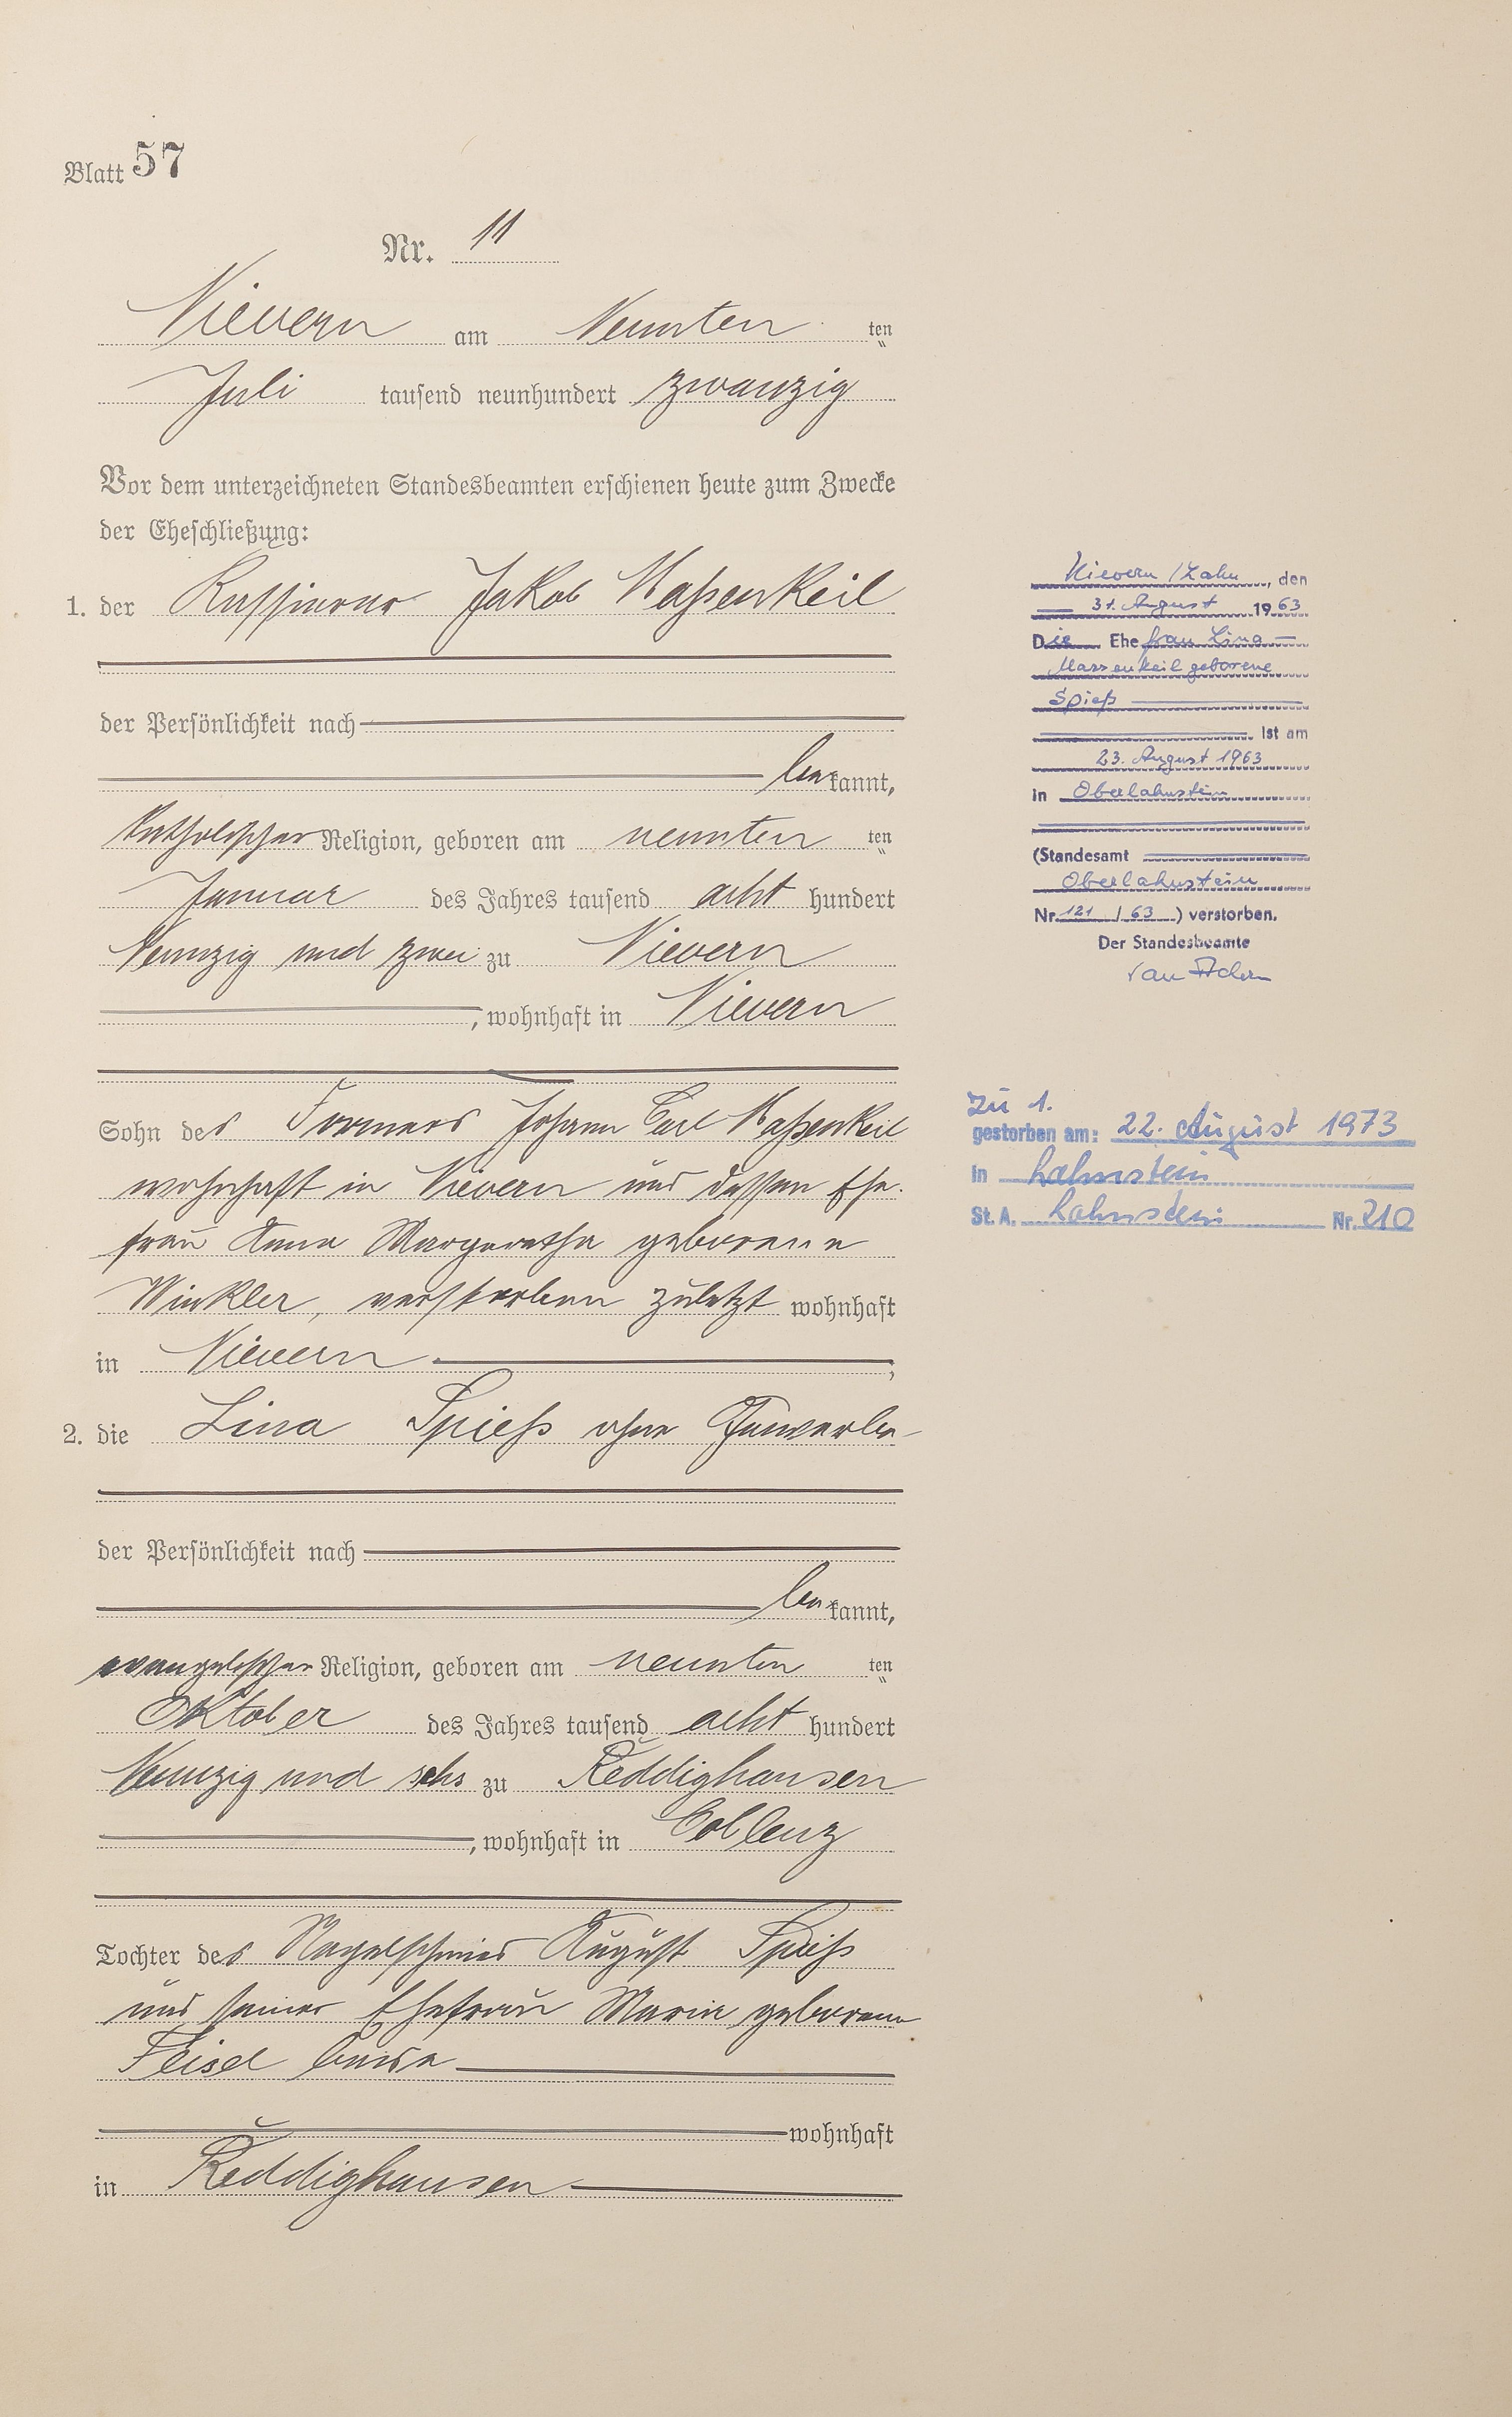 Blatt 57
Nr. 11
Nievern am Neunten ten
Juli tausend neunhundert zwanzig
Vor dem unterzeichneten Standesbeamten erschienen heute zum Zwecke
der Eheschließung:
1. der Jakob Maßenkeil
der Persönlichkeit nach
be kannt,
katholischer Religion, geboren am neunten ten
Januar des Jahres tausend acht hundert
Neunzig und zwei zu Nievern
, wohnhaft in Nievern
Sohn des Formers Johann Carl Maßenkeil
wohnhaft in Nievern und dessen Ehe-
frau Anna Margaretha geborene
Winkler, verstorben zuletzt wohnhaft
in Nievern ,
2. die Lina Spieß ohne Gewerbe
der Persönlichkeit nach
be kannt,
evangelischer Religion, geboren am neunten ten
Oktober des Jahres tausend acht hundert
Neunzig und sehs zu Reddighausen
, wohnhaft in Coblenz
Tochter des Nagelschmied August Spieß
und seiner Ehefrau Maria geborene
Feisel beide
wohnhaft
in Reddighausen
Nievern / Lahn, den
31. August 1963
Die Ehefrau Lina
Massenkeil geborene
Spieß
ist am
23. August 1963
in Oberlahnstein
(Standesamt
Oberlahnstein
Nr. 121 / 63 ) verstorben.
Der Standesbeamte
Zu 1.
gestorben am: 22. August 1973
in Lahnstein
St. A. Lahnstein Nr. 210